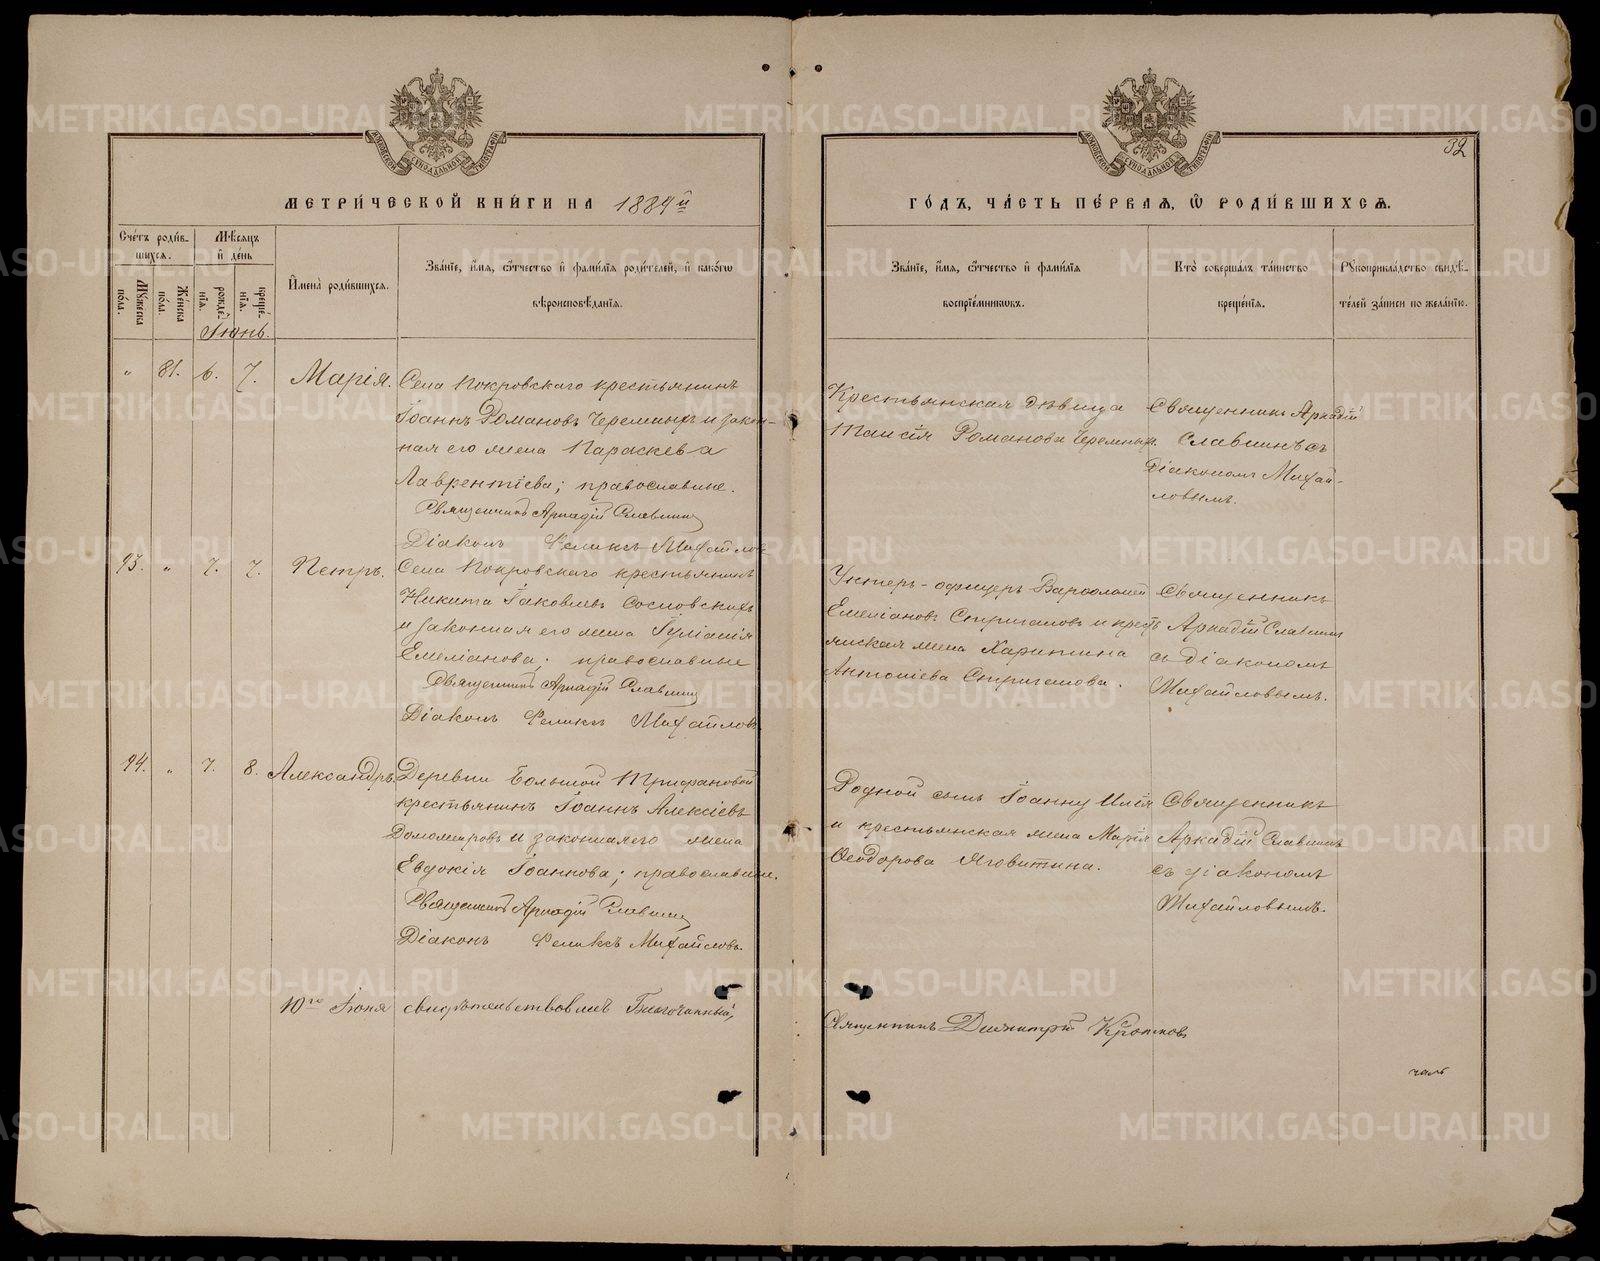 32
МЕТРИ́ЧЕСКОЙ КНИ́ГИ НА 1884й
ГО́ДЪ, ЧА́СТЬ ПЕ́РВАЯ, Ѡ РОДИ́ВШИХСЯ.
Сче́тъ роди́в-
шихся.
Му́жеска по́ла.
Же́нска по́ла.
Мѣ́сяцъ и де́нь
рожде́нія.
креще́нія.
Имена̀ роди́вшихся.
Зва́ніе, и́мя, о́тчество и фами́лія роди́телей, и како́гѡ
вѣроисповѣ́данія.
Зва́ніе, и́мя, о́тчество и фами́лія
воспріе́мниковъ.
Кто̀ соверша́лъ та́инство
креще́нія.
Рукоприкла́дство свидѣ́-
телей за́писи по жела́нію.
Іюнь.
" 81. 6. 7. Марія.
Села Покровскаго крестьянинъ
Іоаннъ Романовъ Черемныхъ и закон-
ная его жена Параскева
Лаврентіева; православные.
Священникъ Аркадій Славнинъ
Діаконъ Феликсъ Михайловъ
Крестьянская дѣвица
Таисія Романова Черемныхъ.
Священникъ Аркадій
Славнинъ съ
Діакономъ Михай-
ловымъ.
93. " 7. 7. Петръ.
Села Покровскаго крестьянинъ
Никита Іаковлевъ Сосновскихъ
и законная его жена Іуліанія
Емеліанова; православные
Священникъ Аркадій Славнинъ
Діаконъ Феликсъ Михайловъ
Унтеръ-офицеръ Варѳоломей
Емеліановъ Стригановъ и кресть
янская жена Харитина
Антоніева Стриганова.
Священникъ
Аркадій Славнинъ
съ діакономъ
Михайловымъ.
94. " 7. 8. Александръ.
Деревни Большой Трифановой
крестьянинъ Іоаннъ Алексіевъ
и законная его жена
Евдокія Іоаннова; православные.
Священникъ Аркадій Славнинъ
Діаконъ Феликсъ Михайловъ.
Родной сынъ Іоанну Илія
и крестьянская жена Марія
Ѳеодорова Яговитина.
Священникъ
Аркадій Славнинъ
съ діакономъ
Михайловымъ.
10го Іюня свидѣтельствовалъ Благочинный,
Священникъ Димитрій
METRIKI.GASO-URAL.RU